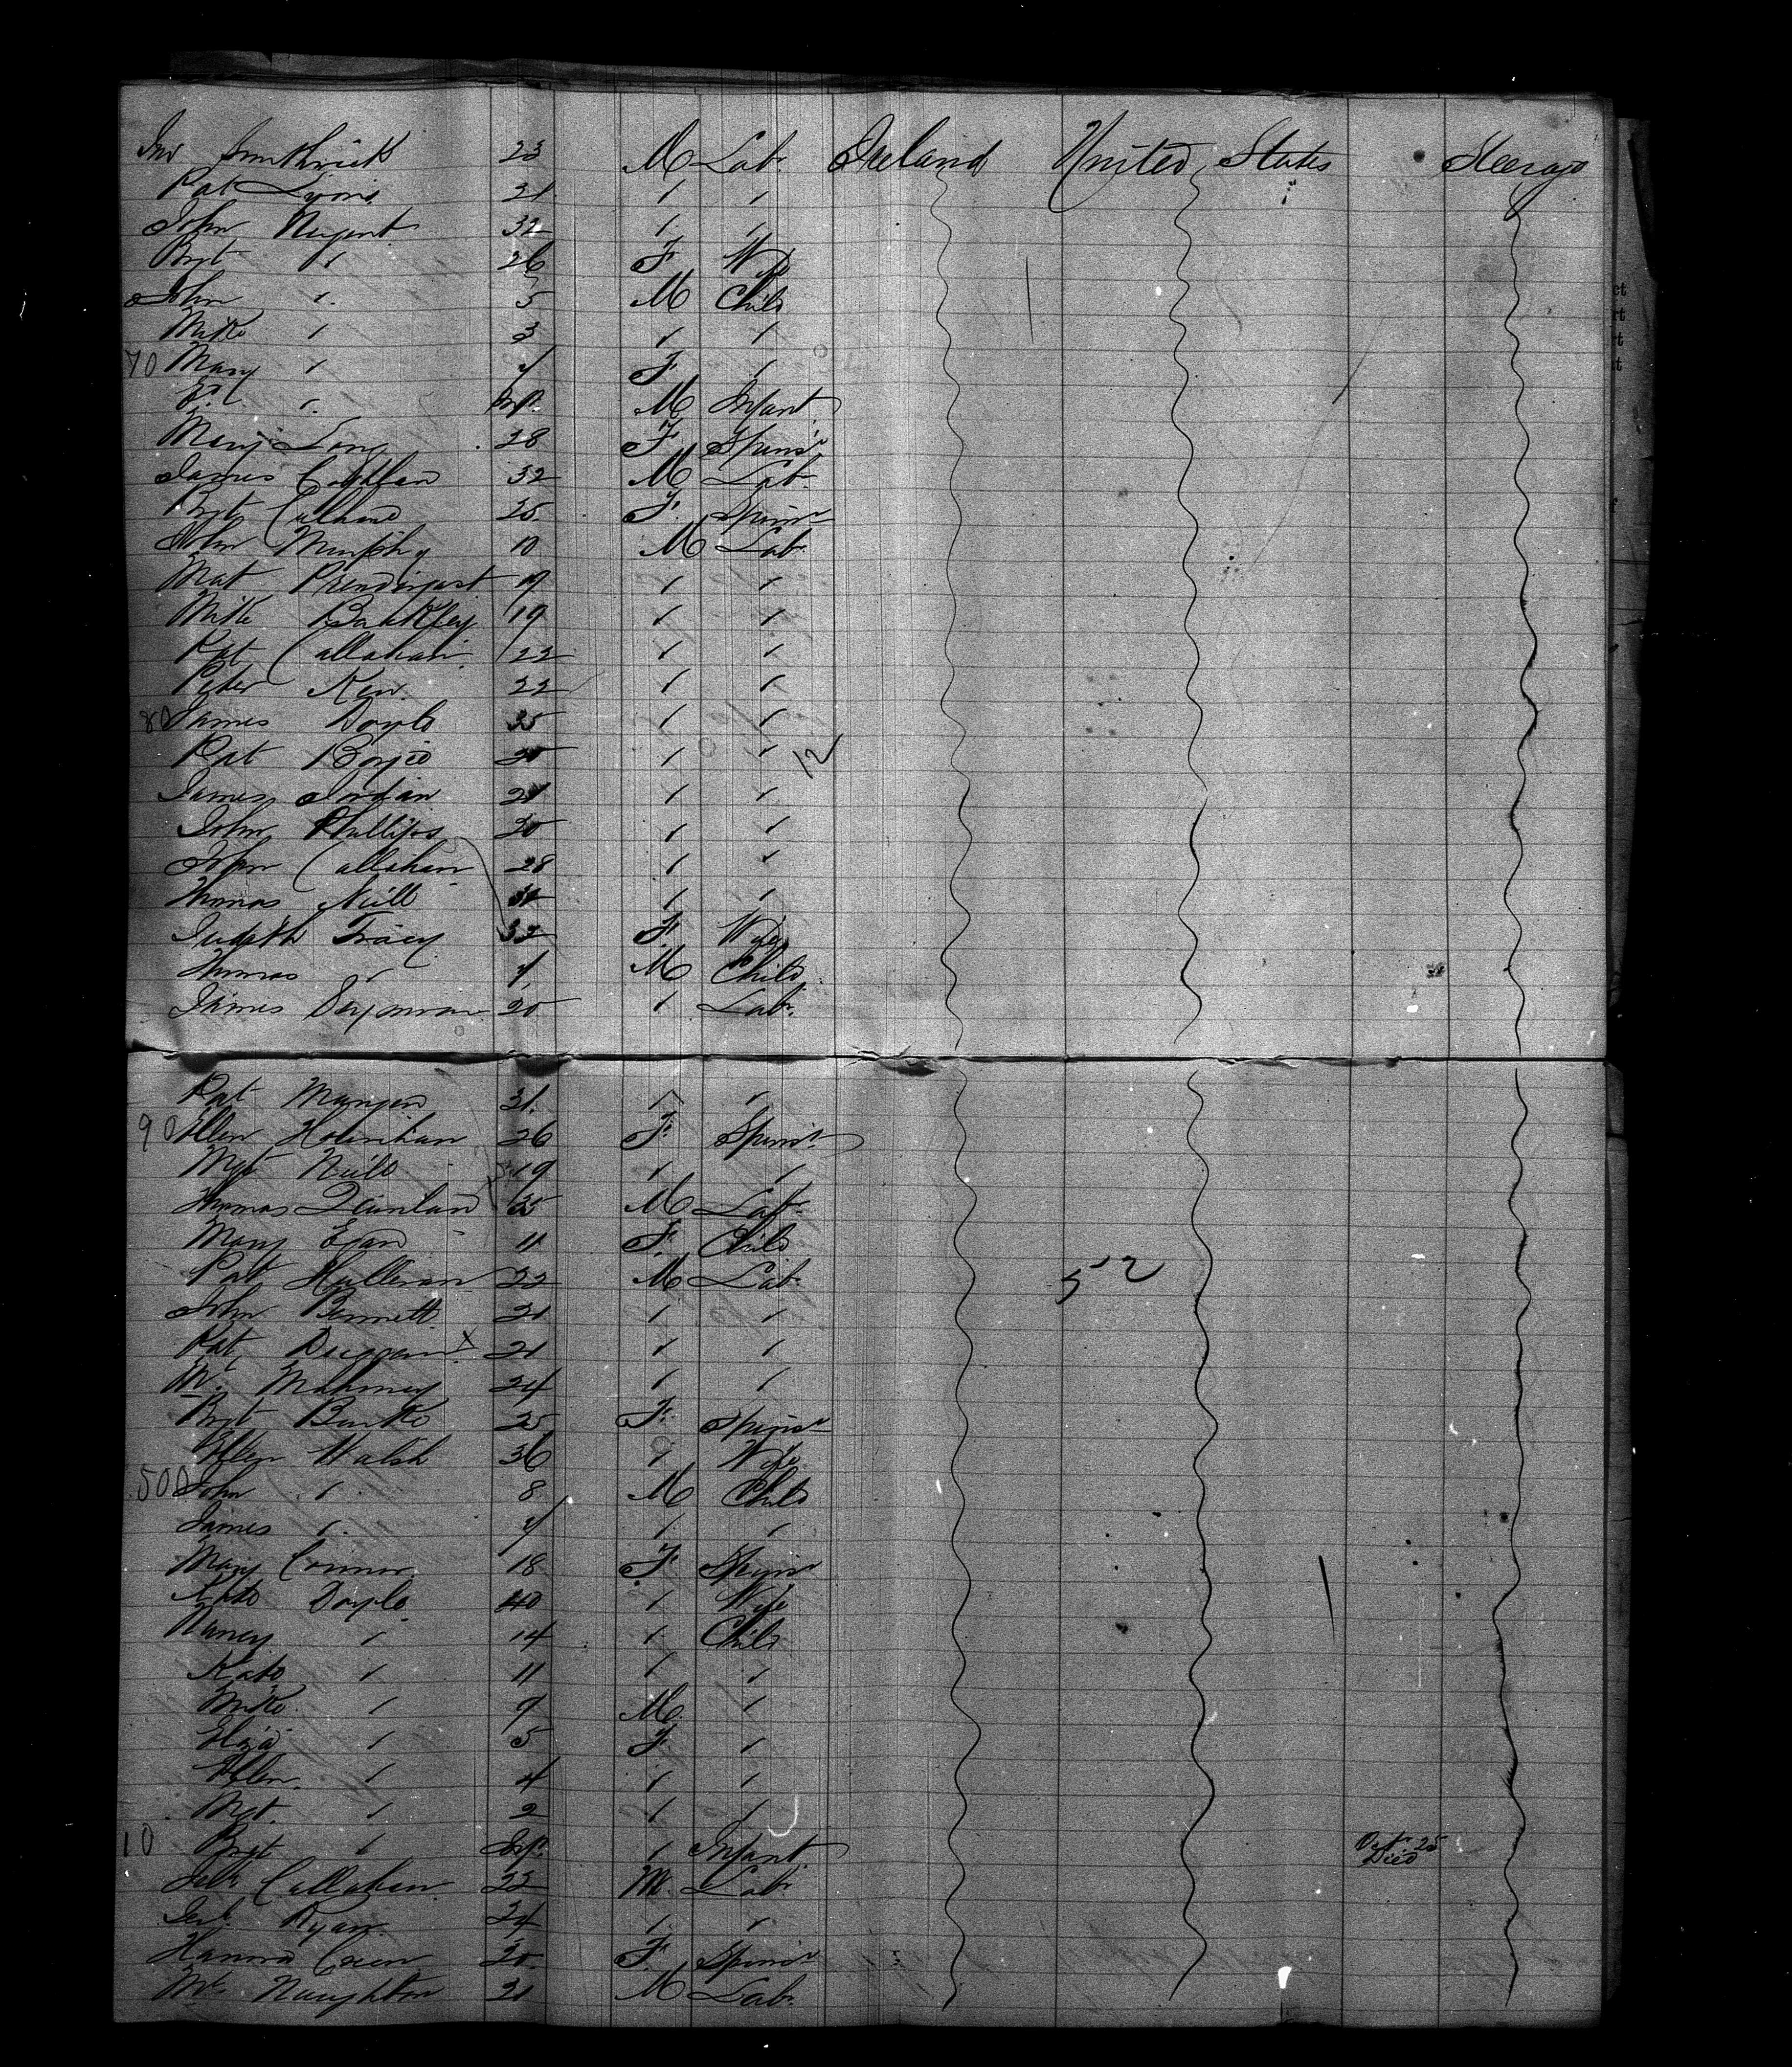 23 M Lab. Ireland United States Steerage
Pat Lyons 21 " "
John Nugent 32 " "
Bgt " 26 F Wife
John " 5 M Child
Mike " 3 " "
70 Mary " F "
" Inft. M Infant
Mary Long 28 F Spinsr
James Coghlan 32 M Lab.
Bgt 25 F Spinsr
John Murphy 10 M Lab.
Mat Prendergast 19 " "
Mike 19 " "
Pat Callahan 22 " "
Peter 22 " "
80 James Doyle 35 " "
Pat 20 " " 12
James Jordan 21 " "
John Phillips 20 " "
John Callahan 28 " "
Thomas Neill " "
Judith Tracy 32 F Wife
Thomas " M Child
James 20 " Lab.
Pat 31 " "
90 Ellen Hourihan 26 F Spinsr
Mgt Neill 19 " "
Thomas Quinlan 25 M Lab.
Mary Egan 11 F Child
Pat Halleran 22 M Lab. 52
John Bennett 21 " "
Pat Duggan x 21 " "
Ml. Mahoney 24 " "
Bgt Burke 25 F Spinsr
Ellen Walsh 36 " Wife
500 John " 8 M Child
James " " "
Mary Connor 18 F Spinsr
Kate Doyle 40 " Wife
Nancy " 14 " Child
Kate " 11 " "
Mike " 9 M "
Eliza " 5 F "
Ellen " 4 " "
Mgt. " 2 " "
10 Bgt " Inft. " Infant Octr 25 Died
Callahan 22 M Lab.
Ryan 24 " "
Hannah 20 F Spinsr
Ml. Naughton 21 M Lab.